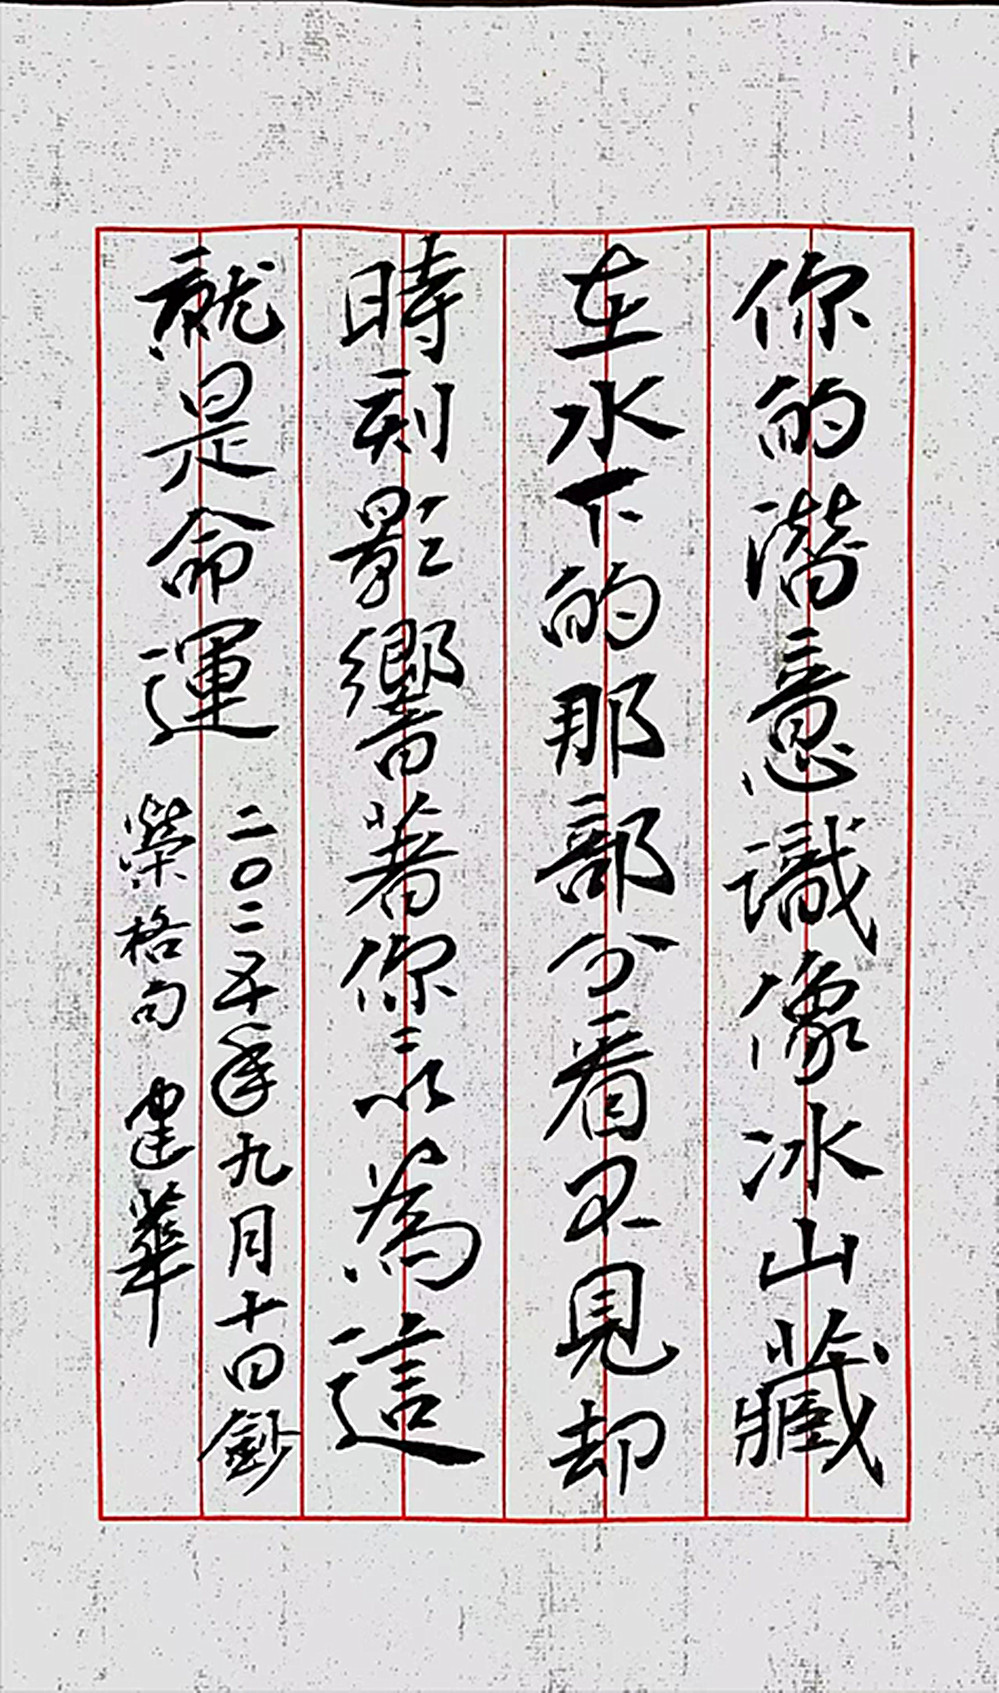 你的潜意識像冰山藏
在水下的那部分看不見却
時刻影響著你以為這
就是命運
二〇二五年九月十四鈔
榮格句 建華